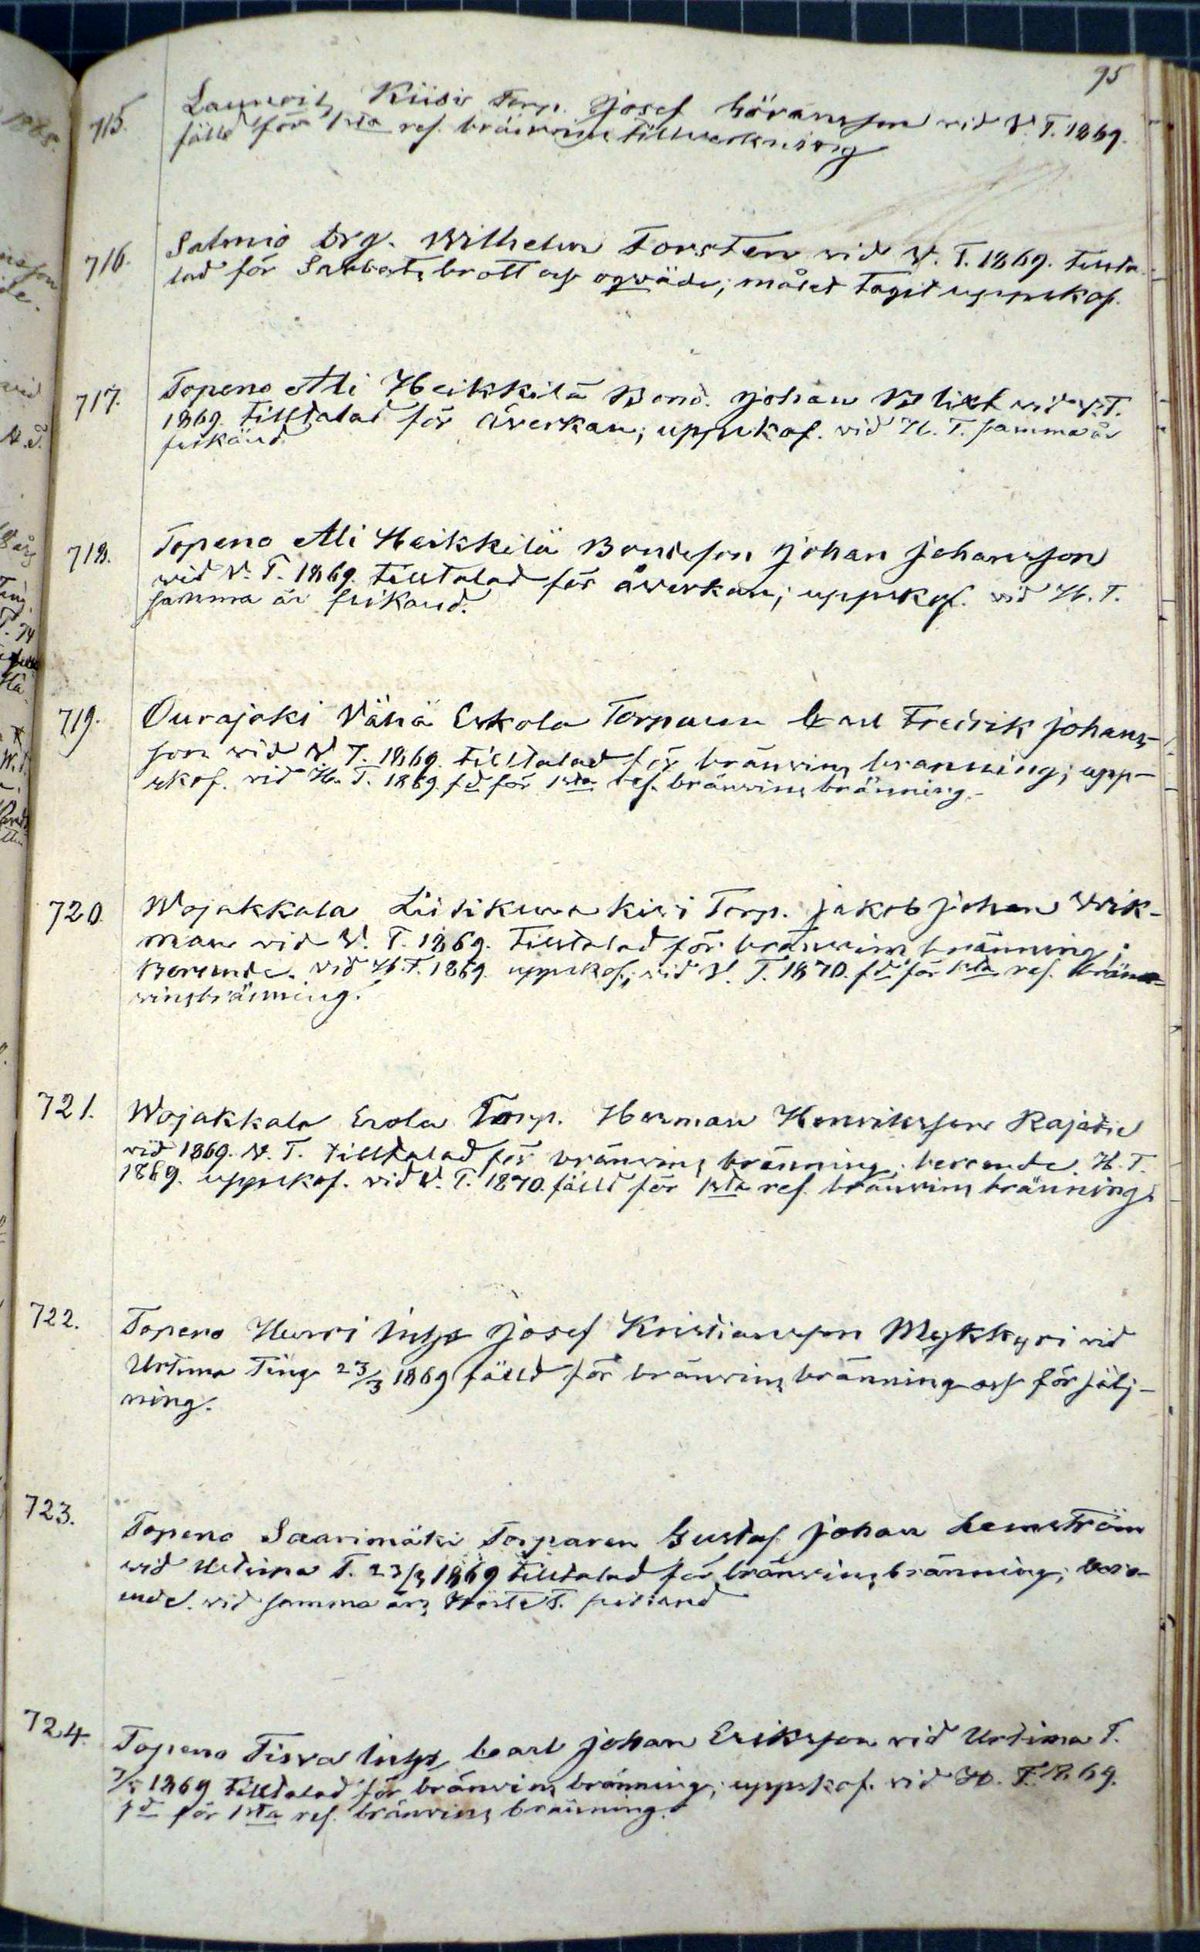 95
715. Launois Kiisis Torp. Josef Göransson vid V. T. 1869.
fälld för 1sta res. bränvins tillverkning
716. Salmis Drg. Wilhelm Forsten vid V. T. 1869. tillta-
lad för Sabbats brott och oqväde; målet tagit uppskof.
717. Topeno Ali Heikkilä Bond. Johan Blixt vid V. T.
1869. tilltalad för åverkan; uppskof. vid H. T. samma år
frikänd
718. Topeno Ali Heikkilä Bondeson Johan Johansson
vid V. T. 1869. tilltalad för åverkan; uppskof. vid H. T.
samma år frikänd.
719. Ourajoki Vähä Eskola Torparen Carl Fredrik Johans-
son vid V. T. 1869. tilltalad för bränvins bränning; upp-
skof. vid H. T. 1869. fd för 1sta res. bränvins bränning.
720. Wojakkala Torp. Jakob Johan Wik-
man vid V. T. 1869. tilltalad för bränvins bränning;
Beroende. vid H. T. 1869. uppskof; vid V. T. 1870. fd för 1sta res. bränn-
vinsbränning.
721. Wojakkala Erola Torp. Herman Henriksson Rajala
vid 1869. V. T. tilltalad för bränvins bränning; beroende. H. T.
1869. uppskof. vid V. T. 1870. fälld för 1sta res. bränvins bränning.
722. Topeno Hurri Inhs Josef Kristiansson Mykkyri vid
Urtima Ting 23/3 1869 fälld för bränvins bränning och försälj-
ning.
723. Topeno Saarimäki Torparen Gustaf Johan Lemström
vid Urtima T. 23/3 1869 tilltalad för bränvins bränning; bero-
ende. vid samma års Höste T. frikänd
724. Topeno Tirva Inhs Carl Johan Eriksson vid Urtima T.
1869 tilltalad för bränvins bränning; uppskof. vid H. T. 1869.
fd för 1sta res. bränvins bränning.